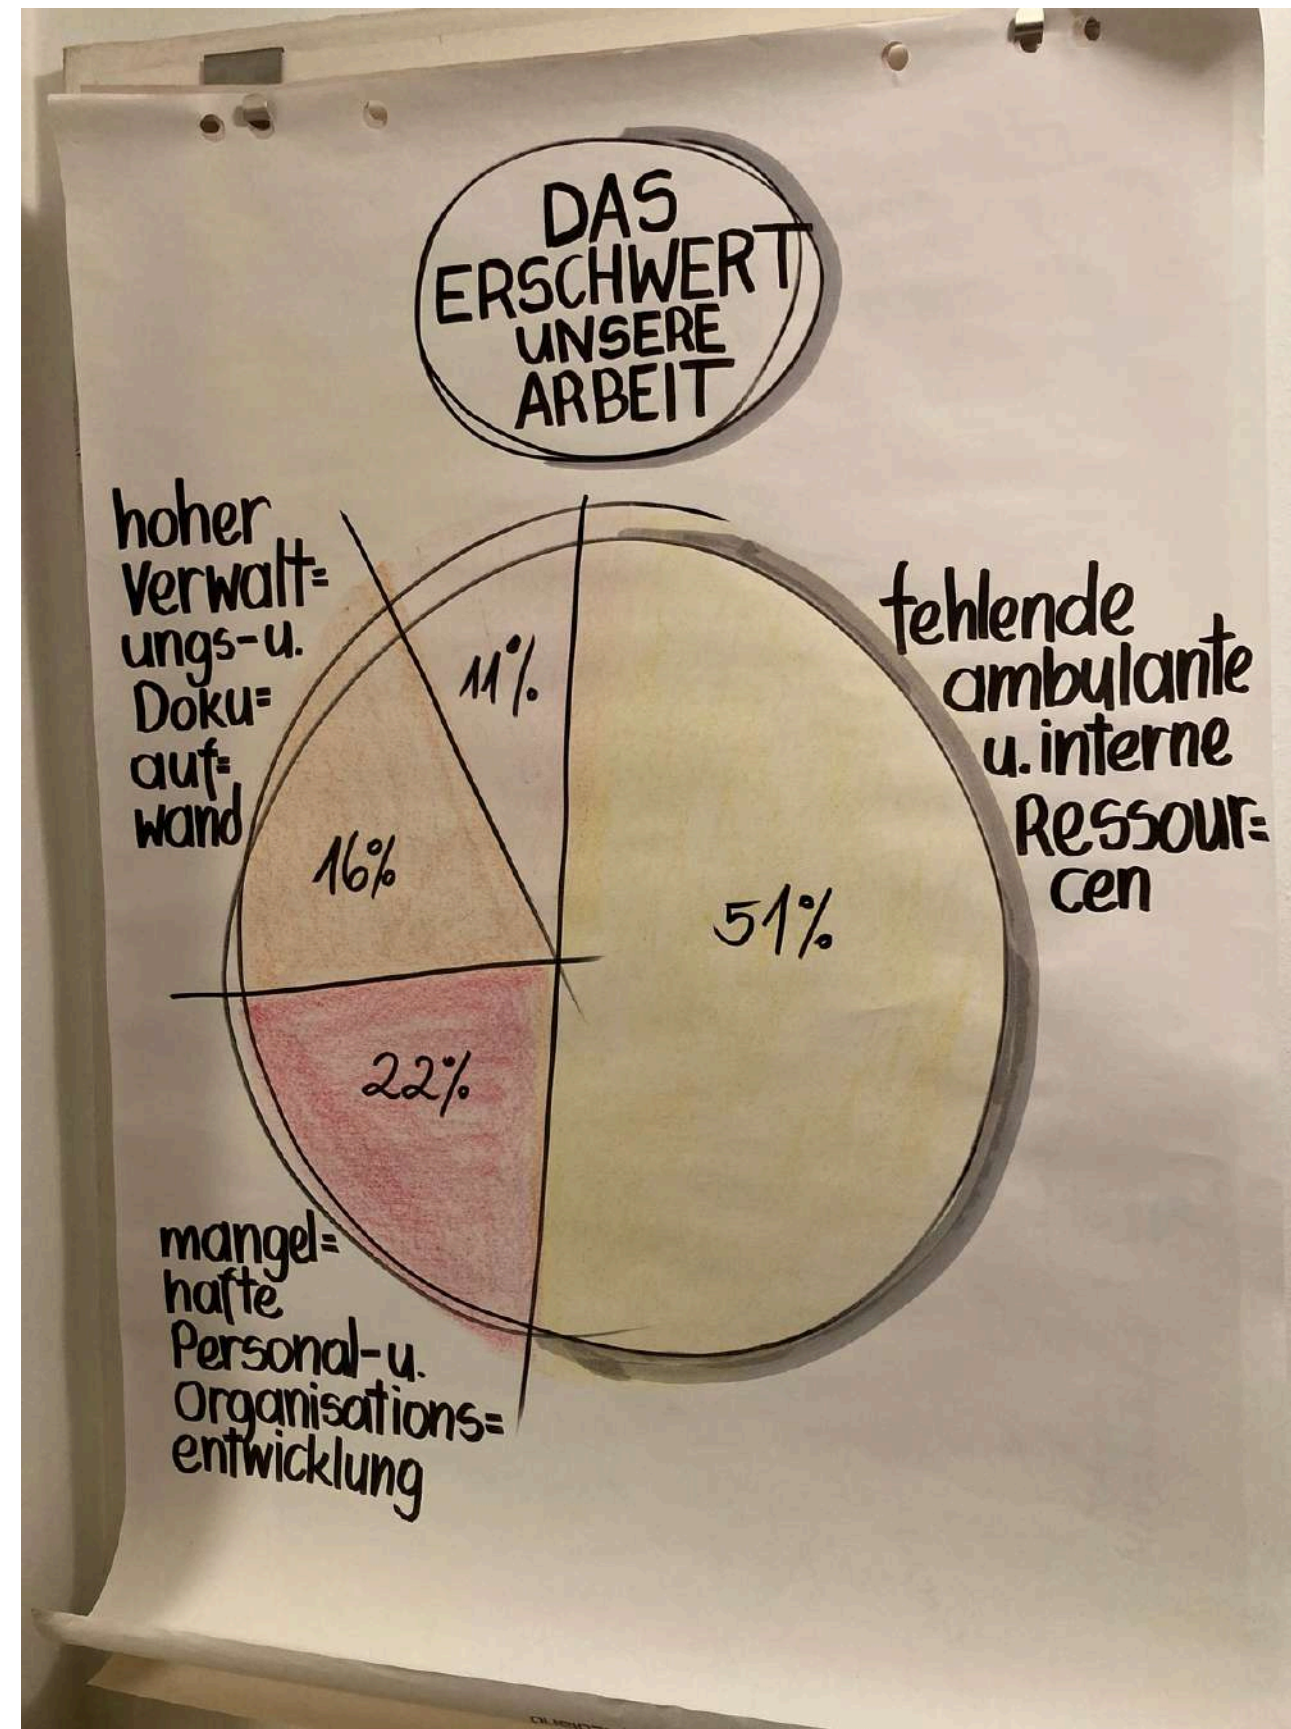 DAS
ERSCHWERT
UNSERE
ARBEIT
hoher
Verwalt=
ungs-u.
Doku=
auf=
wand
11%
16%
fehlende
ambulante
u. interne
Ressour=
cen
51%
22%
mangel=
hafte
Personal-u.
Organisations=
entwicklung